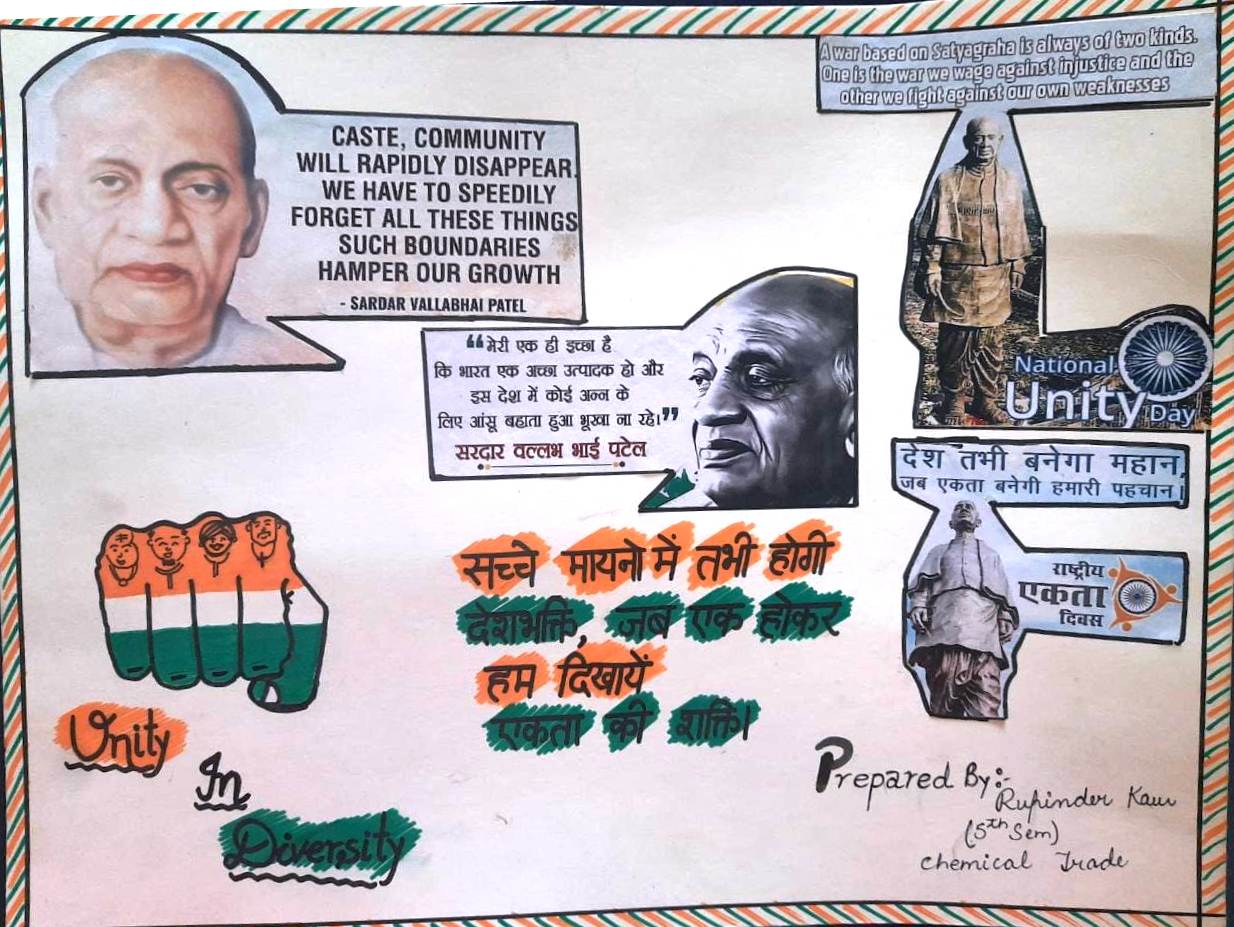 CASTE, COMMUNITY
WILL RAPIDLY DISAPPEAR.
WE HAVE TO SPEEDILY
FORGET ALL THESE THINGS
SUCH BOUNDARIES
HAMPER OUR GROWTH
- SARDAR VALLABHAI PATEL
A war based on Satyagraha is always of two kinds.
One is the war we wage against injustice and the
other we fight against our own weaknesses
National
Unity Day
“मेरी एक ही इच्छा है
कि भारत एक अच्छा उत्पादक हो और
इस देश में कोई अन्न के
लिए आंसू बहाता हुआ भूखा ना रहे।”
सरदार वल्लभ भाई पटेल
देश तभी बनेगा महान,
जब एकता बनेगी हमारी पहचान।
राष्ट्रीय
एकता
दिवस
सच्चे मायनो में तभी होगी
देशभक्ति, जब एक होकर
हम दिखायें
एकता की शक्ति।
Unity
In
Diversity
Prepared By:-
Rupinder Kaur
(5th Sem)
Chemical Trade